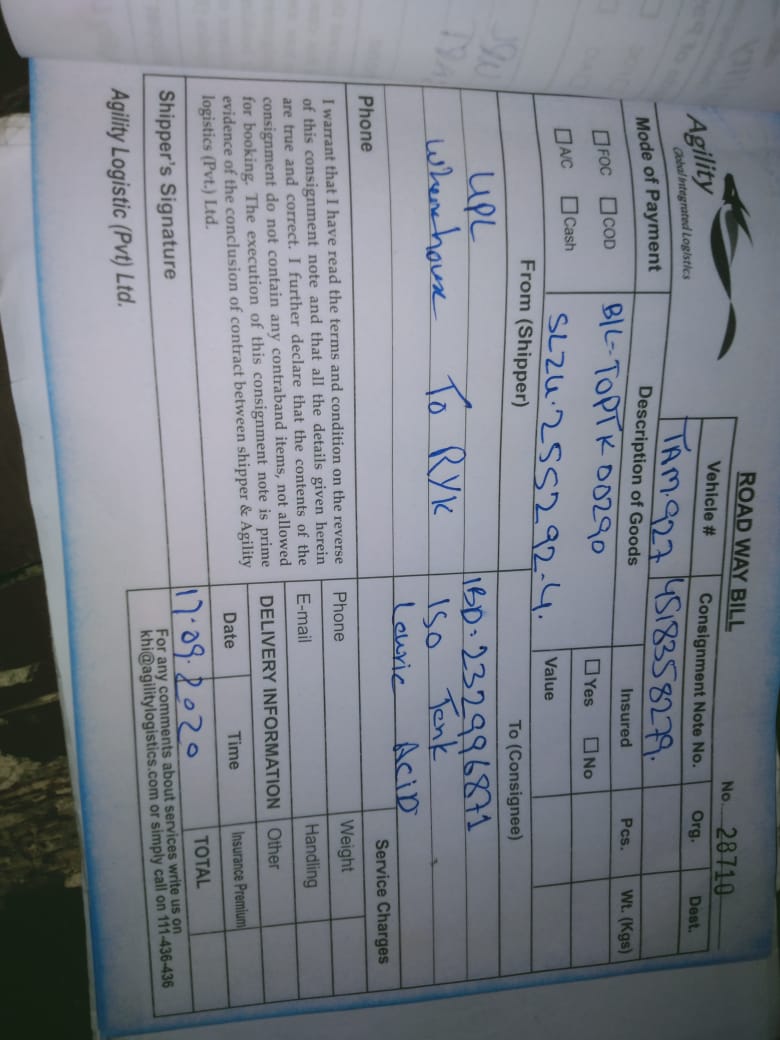 ROAD WAY BILL
No. 28710
Agility
Global Integrated Logistics
Vehicle # Consignment Note No. Org. Dest.
TAM-927 4518358279.
Mode of Payment Description of Goods Insured Pcs. Wt. (Kgs)
FOC COD B/L-TOPTK00290 Yes No
A/C Cash SLZU.255292-4. Value
From (Shipper) To (Consignee)
UPL IBD:232996871
Wherehouse To RYK ISO Tank
Lauric ACiD
Phone Service Charges
I warrant that I have read the terms and condition on the reverse
of this consignment note and that all the details given herein
are true and correct. I further declare that the contents of the
consignment do not contain any contraband items, not allowed
for booking. The execution of this consignment note is prime
evidence of the conclusion of contract between shipper & Agility
logistics (Pvt.) Ltd.
Phone Weight
E-mail Handling
DELIVERY INFORMATION Other
Date Time Insurance Premium
17.09.2020 TOTAL
Shipper's Signature
For any comments about services write us on
khi@agilitylogistics.com or simply call on 111-436-436
Agility Logistic (Pvt) Ltd.